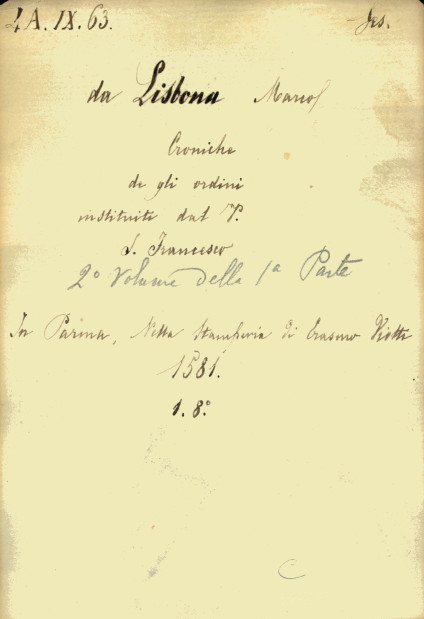 4A.IX.63.
Jes.
da Lisbona Marco
Croniche
de gli ordini
instituiti dal P.
S. Francesco
2º Volume della 1ª Parte
In Parma, Nella Stamperia di Erasmo Viotti
1581.
1. 8º.
C